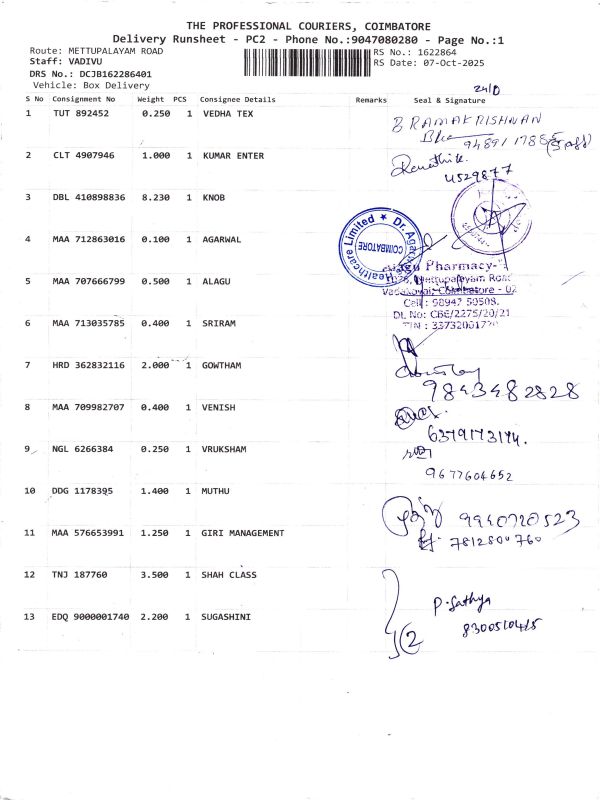 THE PROFESSIONAL COURIERS, COIMBATORE
Delivery Runsheet - PC2 - Phone No.:9047080280 - Page No.:1
Route: METTUPALAYAM ROAD
RS No.: 1622864
Staff: VADIVU
RS Date: 07-Oct-2025
DRS No.: DCJB162286401
Vehicle: Box Delivery
S No Consignment No Weight PCS Consignee Details Remarks Seal & Signature
1 TUT 892452 0.250 1 VEDHA TEX
B RAMAKRISHNAN
2 CLT 4907946 1.000 1 KUMAR ENTER
4529877
3 DBL 410898836 8.230 1 KNOB
4 MAA 712863016 0.100 1 AGARWAL
Healthcare Limited ★ Dr. Agarwal
COIMBATORE
5 MAA 707666799 0.500 1 ALAGU
Pharmacy
Mettupalayam Road
Vadakovai, Coimbatore - 02
Cell : 98942 59508.
DL No: CBE/2275/20/21
6 MAA 713035785 0.400 1 SRIRAM
7 HRD 362832116 2.000 1 GOWTHAM
9843482828
8 MAA 709982707 0.400 1 VENISH
6379173174.
9 NGL 6266384 0.250 1 VRUKSHAM
9677604652
10 DDG 1178395 1.400 1 MUTHU
9940720523
11 MAA 576653991 1.250 1 GIRI MANAGEMENT
7812800760
12 TNJ 187760 3.500 1 SHAH CLASS
P. Sathya
13 EDQ 9000001740 2.200 1 SUGASHINI
2